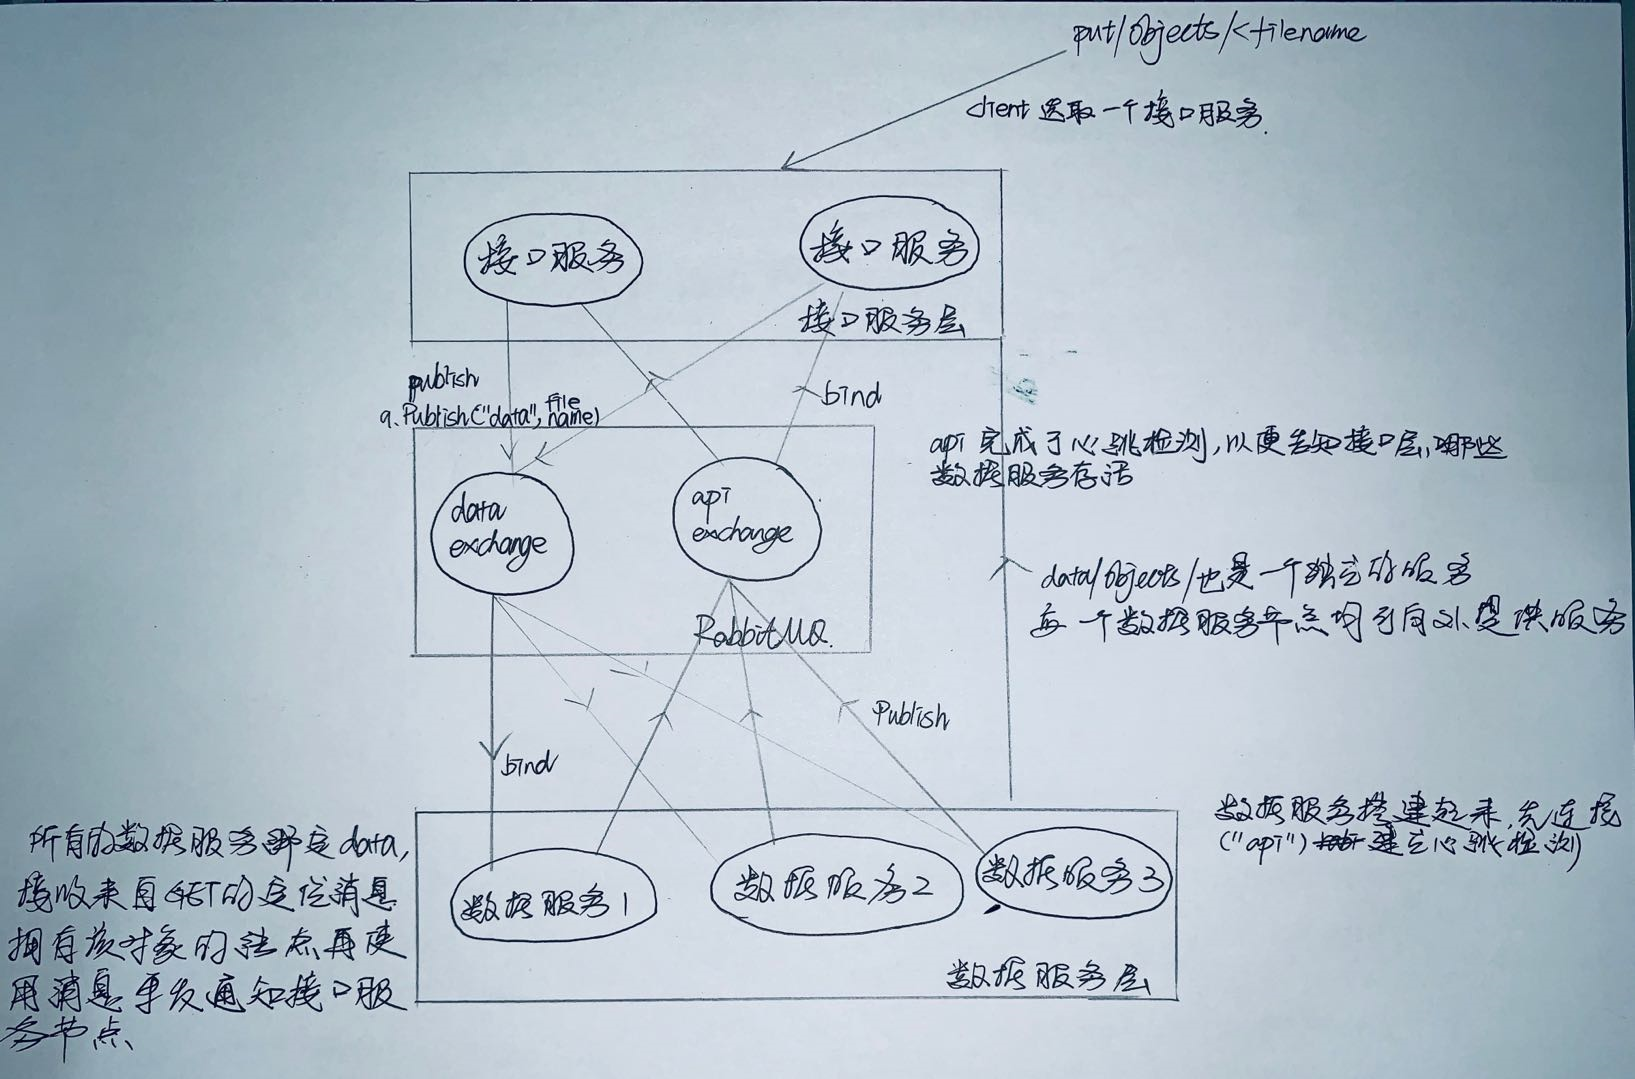 put/objects/<filename
client 选取一个接口服务.
接口服务
接口服务
接口服务层
publish
q.Publish("data", file name)
bind
api 完成了心跳检测,以便告知接口层,哪些
数据服务存活
data
exchange
api
exchange
data/objects/也是一个独立的服务
每一个数据服务节点均可向外提供服务
RabbitMQ.
Publish
bind
数据服务搭建起来,先连接
("api") 建立心跳检测)
所有的数据服务绑定data,
接收来自GET的定位消息
拥有该对象的节点再使
用消息单发通知接口服
务节点
数据服务1
数据服务2
数据服务3
数据服务层